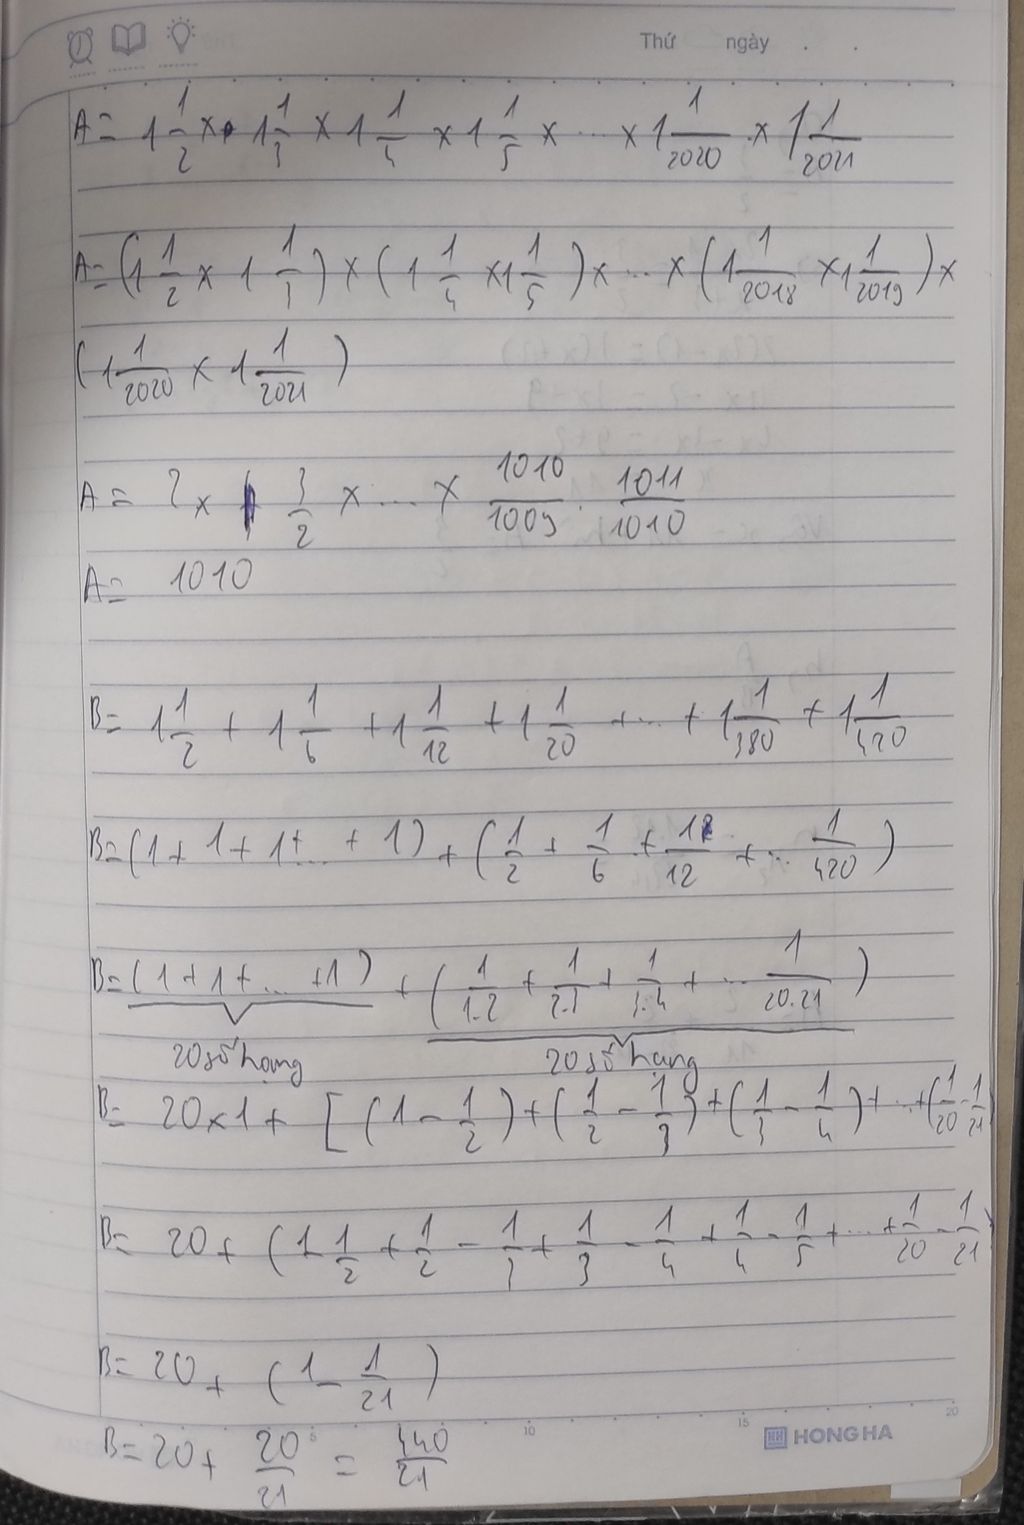 Thứ ngày . .
A = 1 1/2 × 1 1/3 × 1 1/4 × 1 1/5 × ... × 1 1/2020 × 1 1/2021
A = (1 1/2 × 1 1/3) × (1 1/4 × 1 1/5) × ... × (1 1/2018 × 1 1/2019) ×
(1 1/2020 × 1 1/2021)
A = 2 × 3/2 × ... × 1010/1009 . 1011/1010
A = 1010
B = 1 1/2 + 1 1/6 + 1 1/12 + 1 1/20 + ... + 1 1/380 + 1 1/420
B = (1 + 1 + 1 + ... + 1) + (1/2 + 1/6 + 1/12 + ... 1/420)
B = (1 + 1 + ... + 1) + (1/1.2 + 1/2.3 + 1/3.4 + ... 1/20.21)
20 số hạng 20 số hạng
B = 20 × 1 + [(1 - 1/2) + (1/2 - 1/3) + (1/3 - 1/4) + ... + (1/20 - 1/21
B = 20 + (1 - 1/2 + 1/2 - 1/3 + 1/3 - 1/4 + 1/4 - 1/5 + ... + 1/20 - 1/21)
B = 20 + (1 - 1/21)
B = 20 + 20/21 = 440/21
5 10 15 20
HH HONG HA